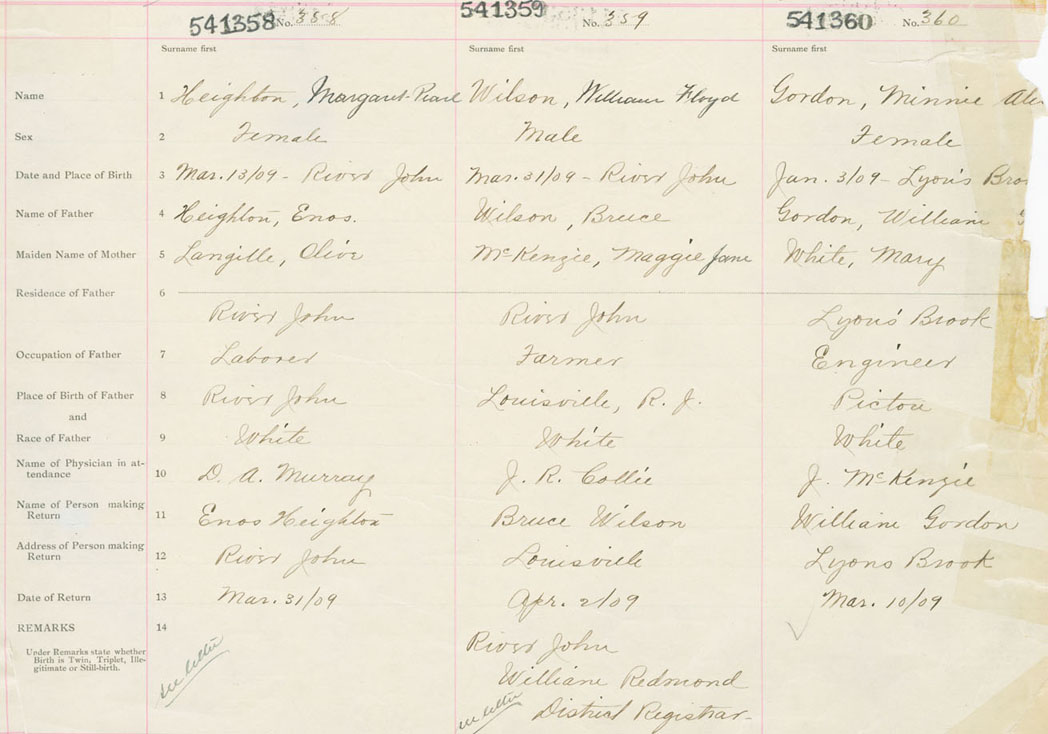 541358 No. 358 541359 No. 359 541360 No. 360
Surname first Surname first Surname first
Name 1 Heighton, Margaret Pearl Wilson, William Floyd Gordon, Minnie
Sex 2 Female Male Female
Date and Place of Birth 3 Mar. 13/09 - River John Mar. 31/09 - River John Jan. 3/09 - Lyon's Broo
Name of Father 4 Heighton, Enos. Wilson, Bruce Gordon, William
Maiden Name of Mother 5 Langille, Olive McKenzie, Maggie Jane White, Mary
Residence of Father 6
River John River John Lyon's Brook
Occupation of Father 7 Laborer Farmer Engineer
Place of Birth of Father 8 River John Louisville, R. J. Pictou
and
Race of Father 9 White White White
Name of Physician in at-
tendance 10 D. A. Murray J. R. Collie J. McKenzie
Name of Person making
Return 11 Enos Heighton Bruce Wilson William Gordon
Address of Person making
Return 12 River John Louisville Lyons Brook
Date of Return 13 Mar. 31/09 Apr. 2/09 Mar. 10/09
REMARKS 14
Under Remarks state whether
Birth is Twin, Triplet, Ille-
gitimate or Still-birth.
see letter
River John
William Redmond
see letter District Registrar